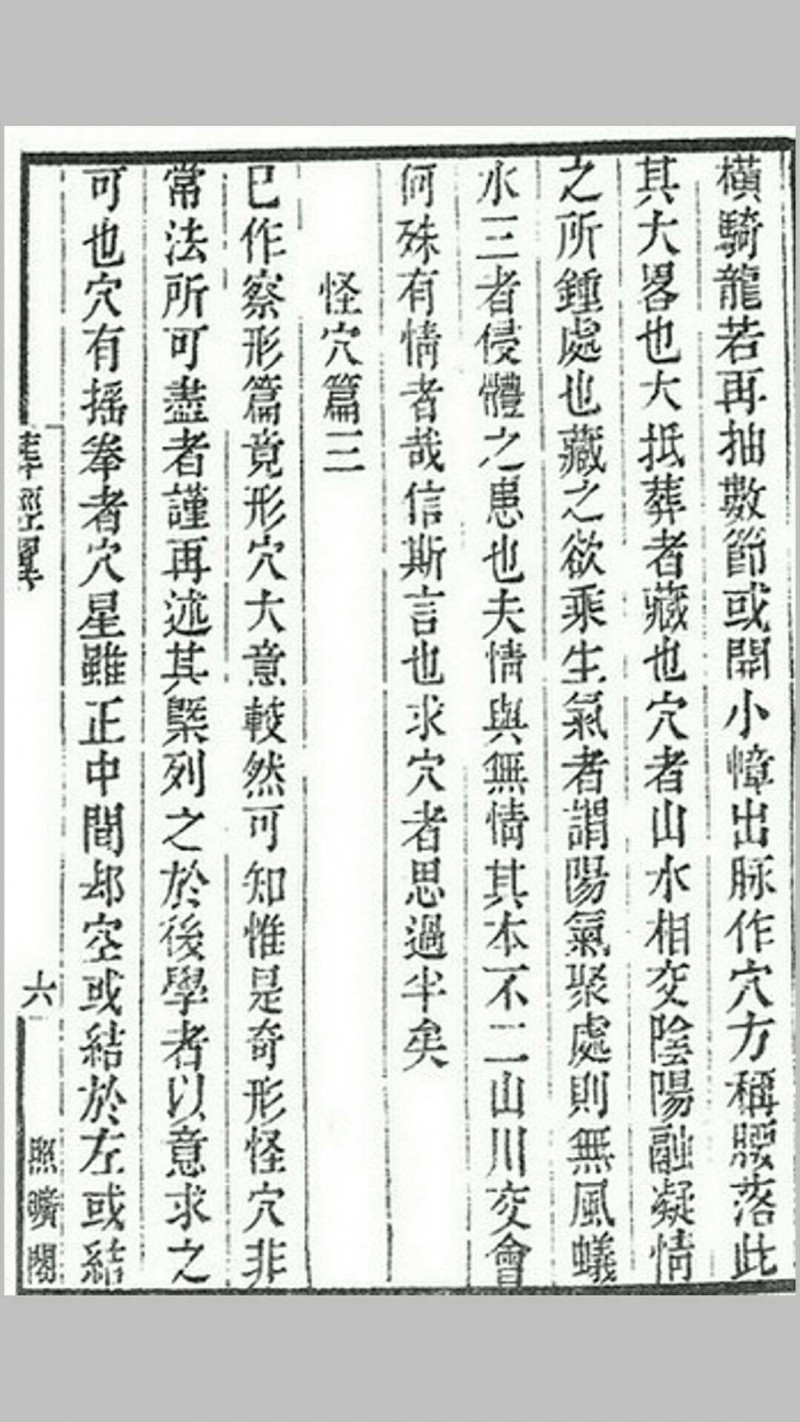 橫騎龍若再抽數節或開小幛出脉作穴方稱腰落此
其大畧也大抵葬者藏也穴者山水相交陰陽融凝情
之所鍾處也藏之欲乘生氣者謂陽氣聚處則無風蟻
水三者侵體之患也夫情與無情其本不二山川交會
何殊有情者哉信斯言也求穴者思過半矣
怪穴篇三
已作察形篇竟形穴大意較然可知惟是奇形怪穴非
常法所可盡者謹再述其槩列之於後學者以意求之
可也穴有搖拳者穴星雖正中間却空或結於左或結
葬經翼
六
照曠閣